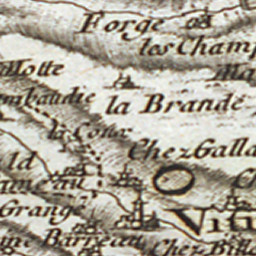 Forge
les Champ
Motte
Ma
mbaudie
la Brande
la Cour
Chez Galla
ld
uneau
Ch
Grange
Vit
Barreau
Chez Bill